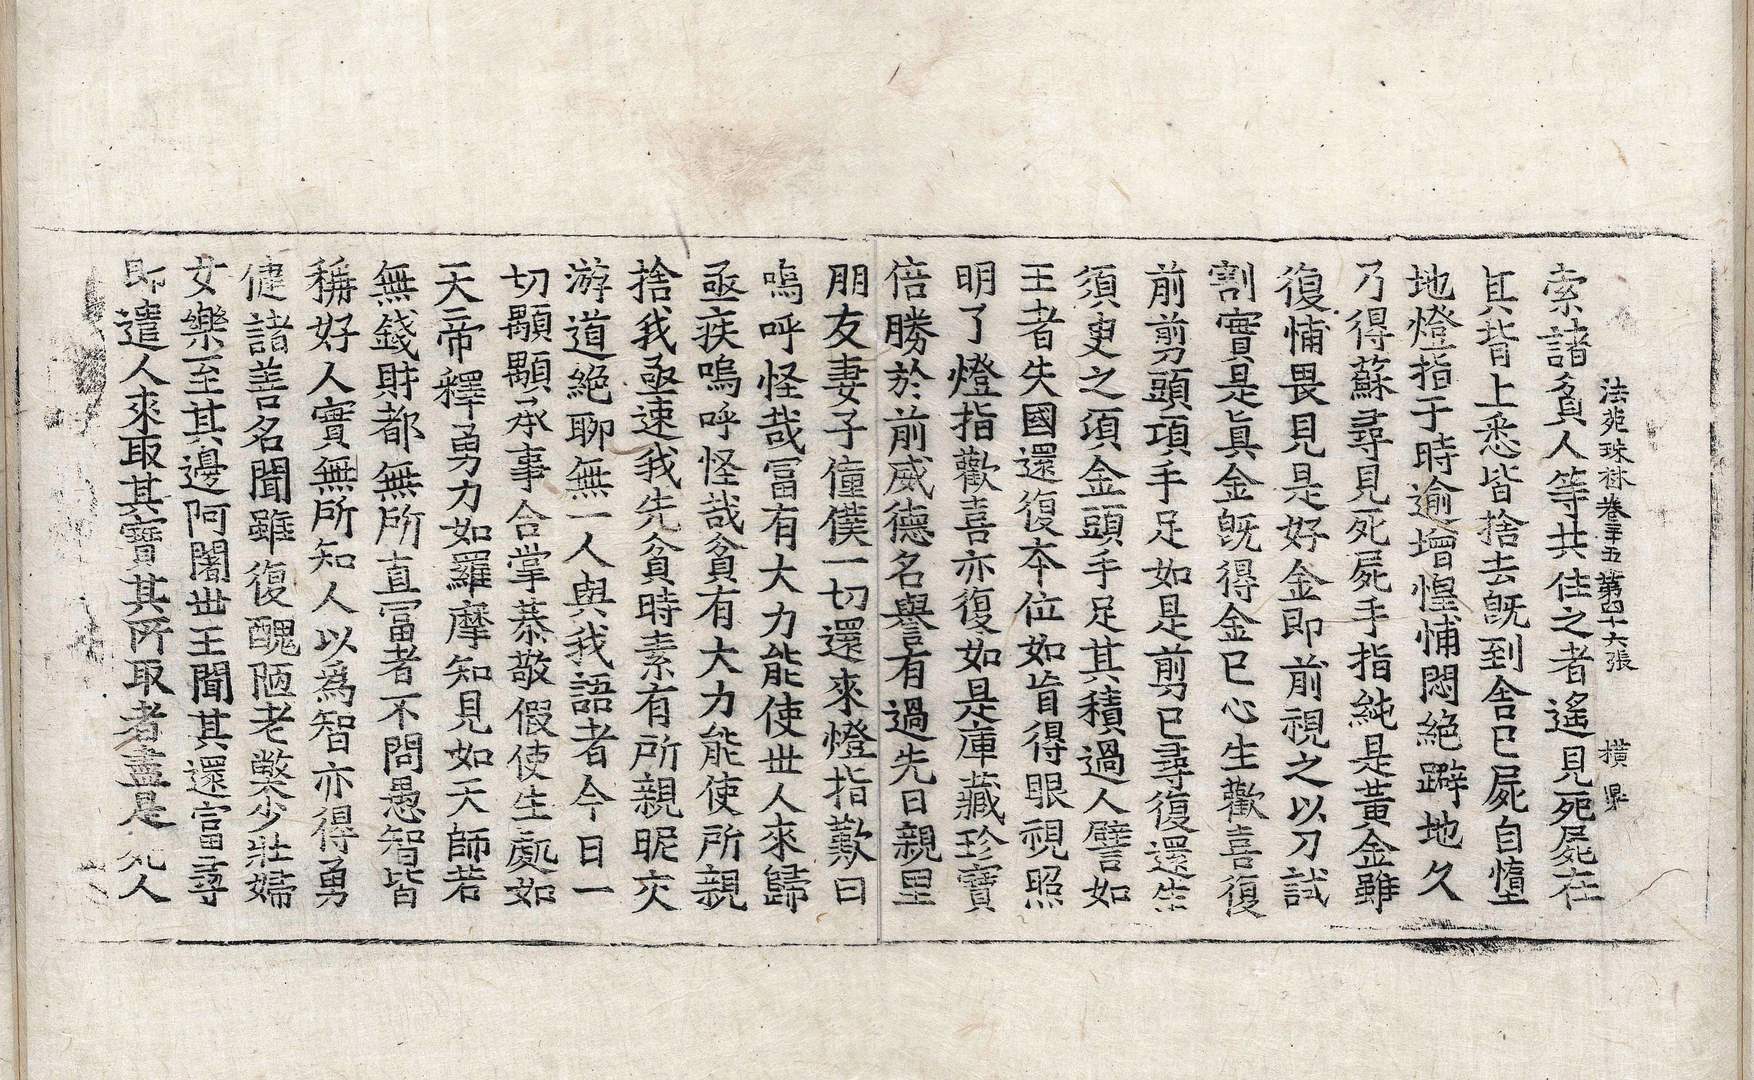 法苑珠林卷三十五 第四十六張 橫
索諸貧人等共住之者遙見死屍在
其背上悉皆捨去旣到舍已屍自墮
地燈指于時逾增惶怖悶絕躃地久
乃得蘇尋見死屍手指純是黃金雖
復怖畏見是好金即前視之以刀試
割實是眞金旣得金已心生歡喜復
前剪頭項手足如是剪已尋復還生
須臾之須金頭手足其積過人譬如
王者失國還復本位如盲得眼視照
明了燈指歡喜亦復如是庫藏珍寶
倍勝於前威德名譽有過先日親里
朋友妻子僮僕一切還來燈指歎曰
嗚呼怪哉冨有大力能使世人來歸
亟疾嗚呼怪哉貧有大力能使所親
捨我亟速我先貧時素有所親昵交
游道絕聊無一人與我語者今日一
切顒顒承事合掌恭敬假使生處如
天帝釋勇力如羅摩知見如天師若
無錢財都無所直冨者不問愚智皆
稱好人實無所知人以爲智亦得勇
健諸善名聞雖復醜陋老獘少壯婦
女樂至其邊阿闍世王聞其還富尋
即遣人來取其寶其所取者盡是死人